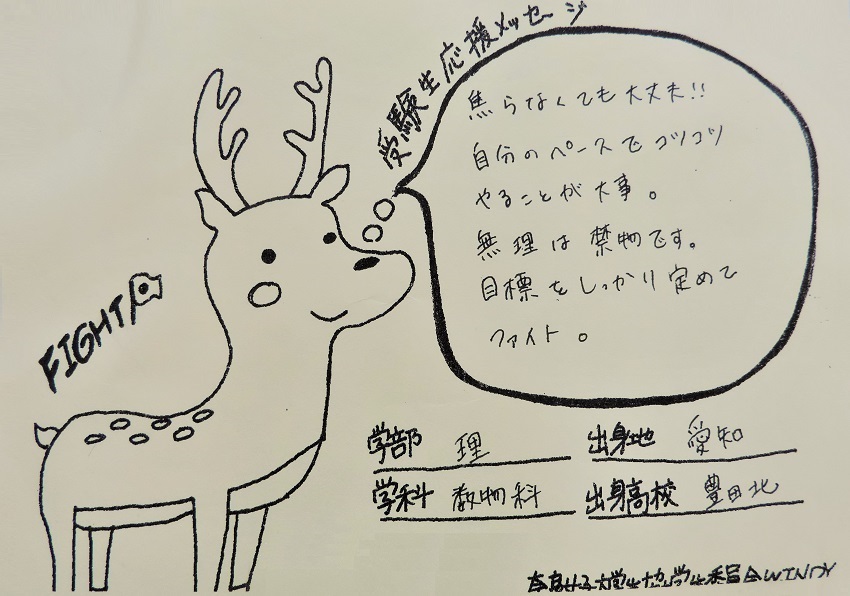 受験生応援メッセージ
焦らなくても大丈夫!!
自分のペースでコツコツ
やることが大事。
無理は禁物です。
目標をしっかり定めて
ファイト。
FIGHT
学部 理
出身地 愛知
学科 数物科
出身高校 豊田北
奈良女子大学生協学生委員会WINDY